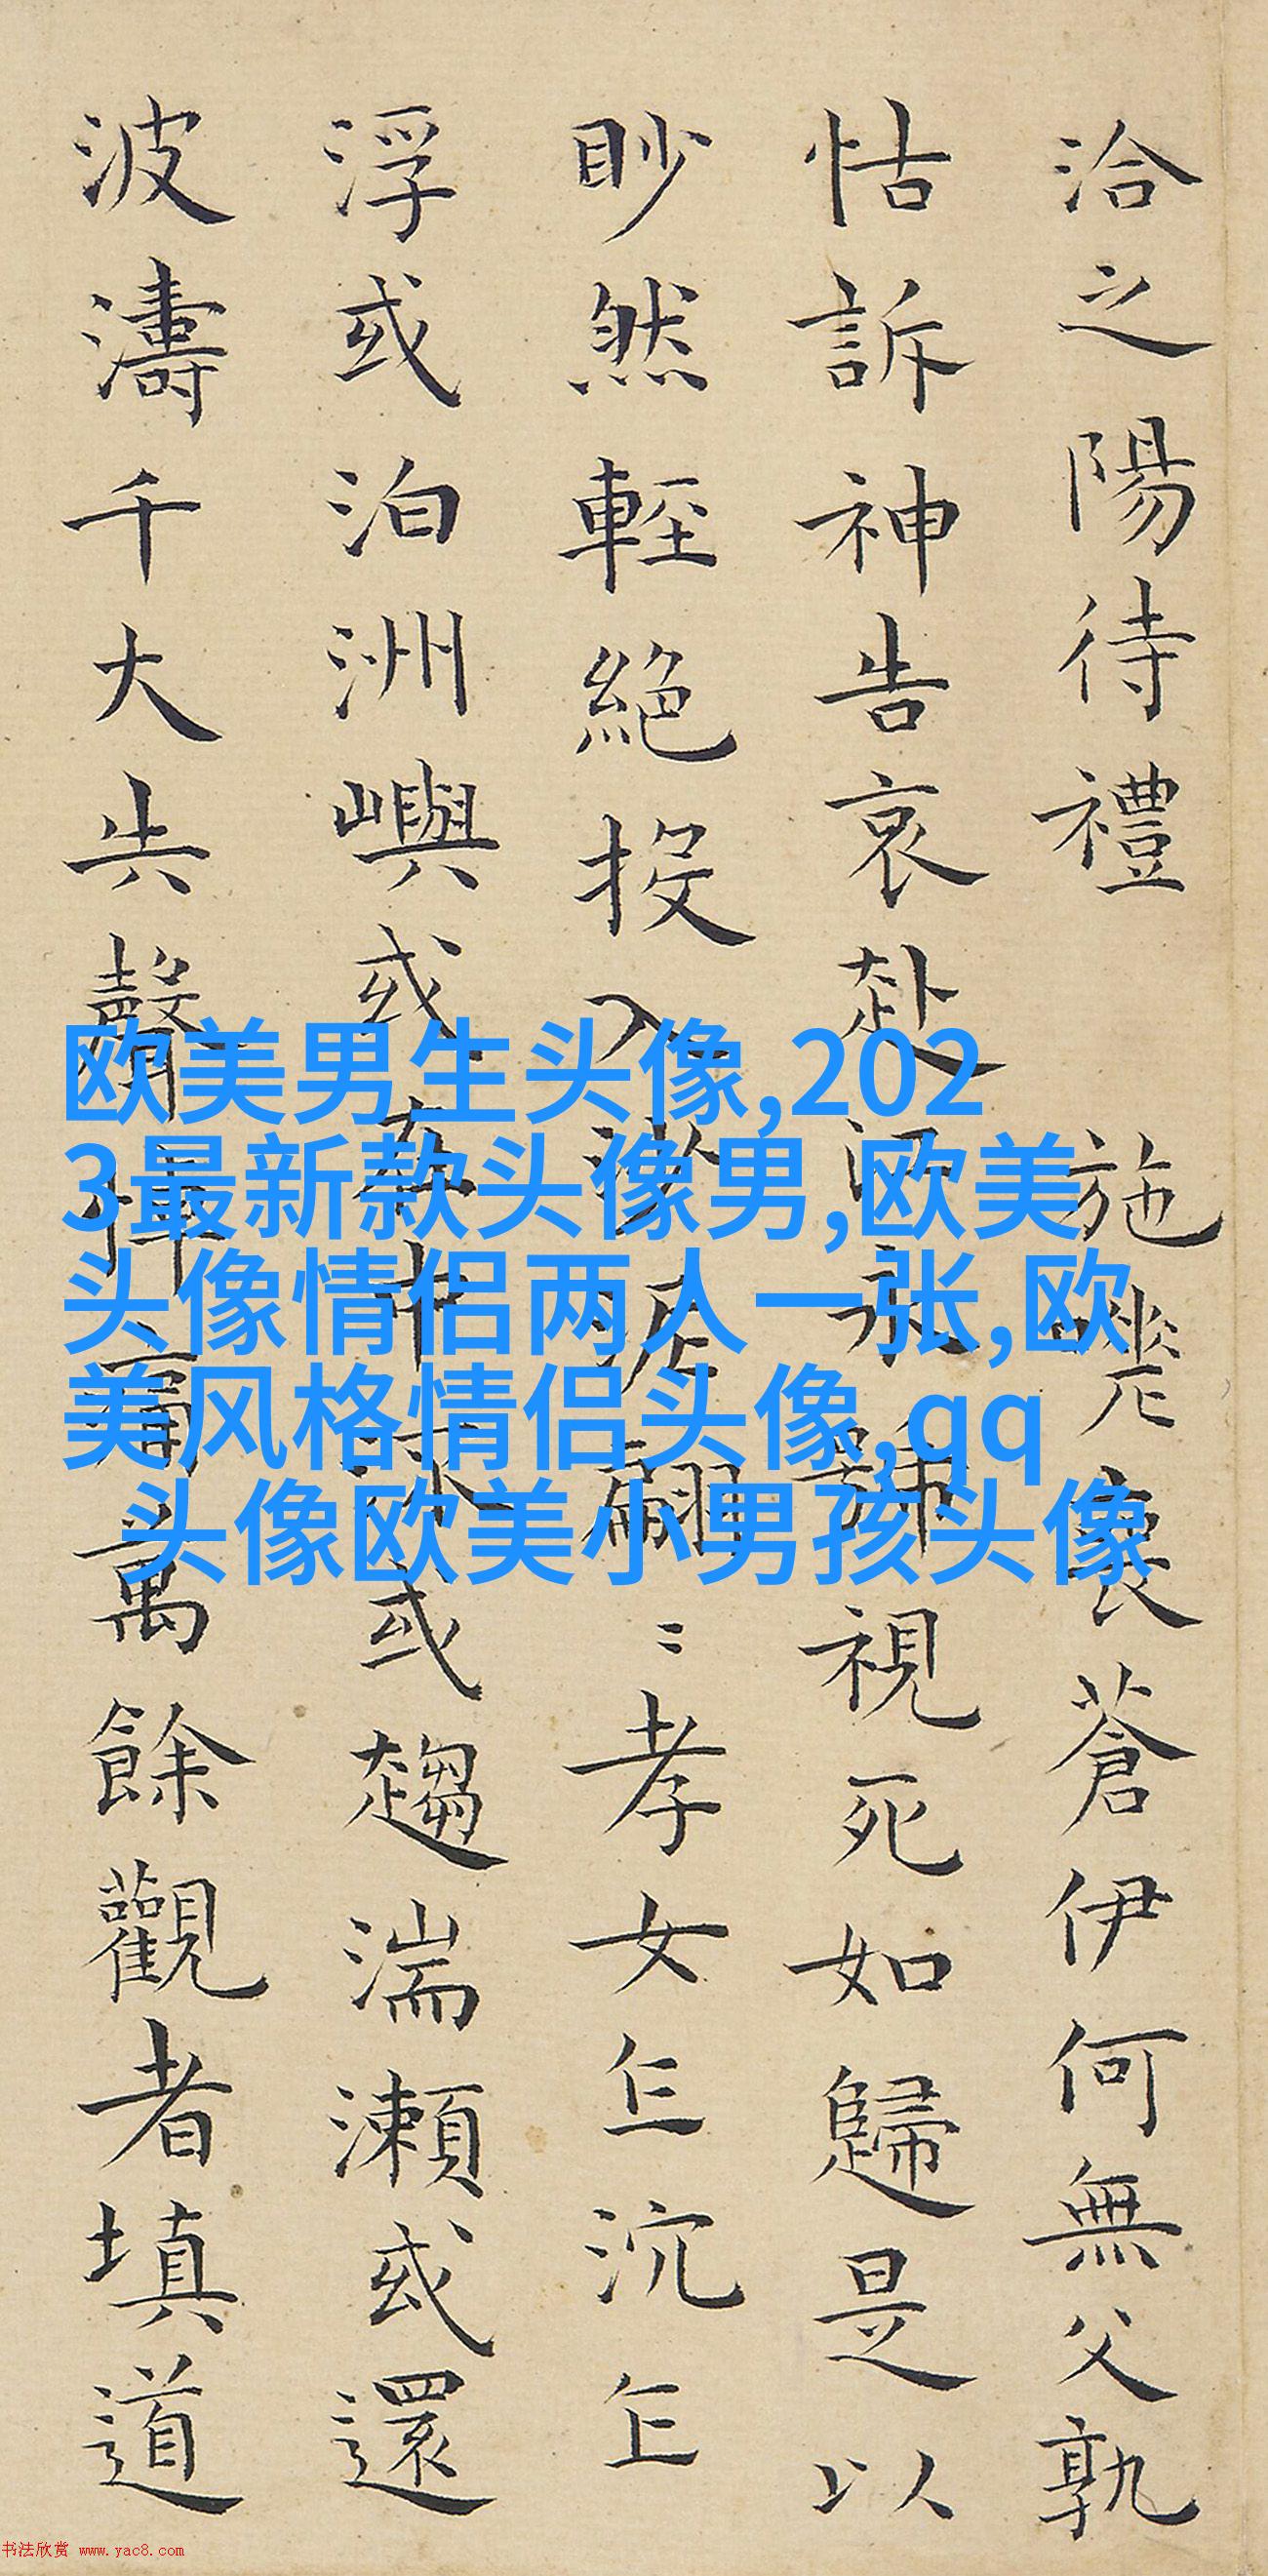 洽之陽待禮 施甇衰蒼伊何無父孰
怙訴神告哀赴江永號視死如歸是以
眇然輕絕投入沙泥翩〻孝女乍沉乍
浮或泊洲嶼或在中流或趨湍瀨或還
波濤千夫失聲悼痛萬餘觀者填道
欧美男生头像,202
3最新款头像男,欧美
头像情侣两人一张,欧
美风格情侣头像,qq
头像欧美小男孩头像
书法欣赏 www.yac8.com